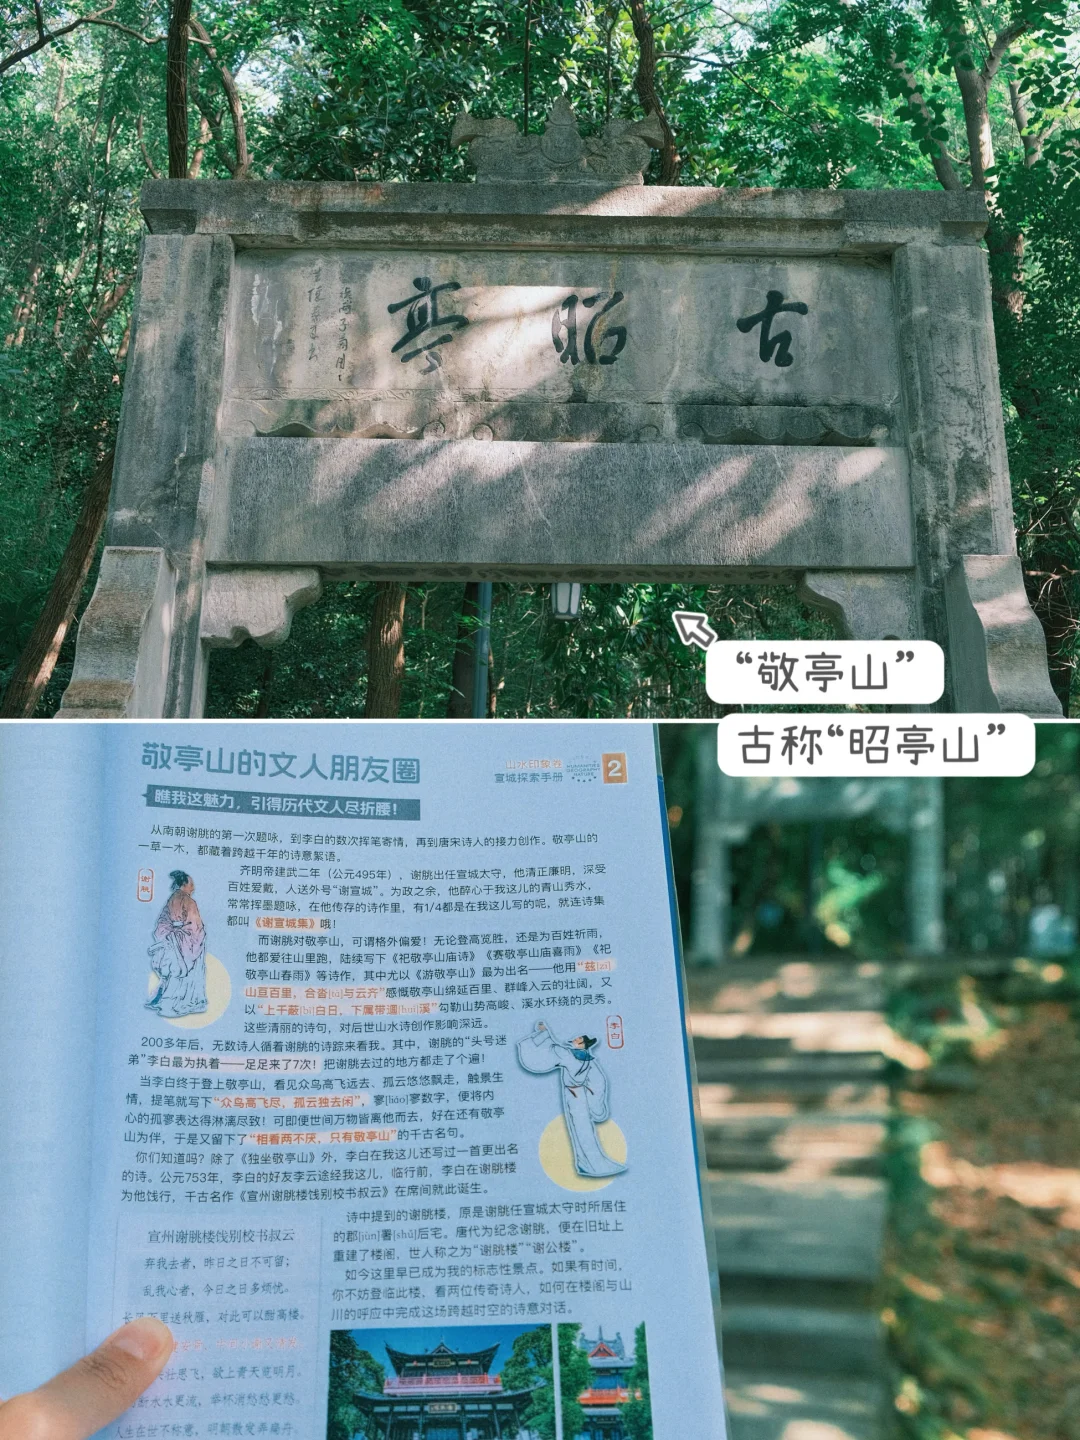 古昭亭
“敬亭山”
古称“昭亭山”
敬亭山的文人朋友圈
山水印象卷
宣城探索手册
2
瞧我这魅力，引得历代文人尽折腰！
从南朝谢朓的第一次题咏，到李白的数次挥笔寄情，再到唐宋诗人的接力创作。敬亭山的
一草一木，都藏着跨越千年的诗意絮语。
谢朓
齐明帝建武二年（公元495年），谢朓出任宣城太守，他清正廉明，深受
百姓爱戴，人送外号“谢宣城”。为政之余，他醉心于我这儿的青山秀水，
常常挥墨题咏，在他传存的诗作里，有1/4都是在我这儿写的呢，就连诗集
都叫《谢宣城集》哦！
而谢朓对敬亭山，可谓格外偏爱！无论登高览胜，还是为百姓祈雨，
他都爱往山里跑，陆续写下《祀敬亭山庙诗》《赛敬亭山庙喜雨》《祀
敬亭山春雨》等诗作，其中尤以《游敬亭山》最为出名——他用“兹[zī]
山亘百里，合沓[tà]与云齐”感慨敬亭山绵延百里、群峰入云的壮阔，又
以“上干蔽[bì]白日，下属带迴[huí]溪”勾勒山势高峻、溪水环绕的灵秀。
这些清丽的诗句，对后世山水诗创作影响深远。
李白
200多年后，无数诗人循着谢朓的诗踪来看我。其中，谢朓的“头号迷
弟”李白最为执着——足足来了7次！把谢朓去过的地方都走了个遍！
当李白终于登上敬亭山，看见众鸟高飞远去、孤云悠悠飘走，触景生
情，提笔就写下“众鸟高飞尽，孤云独去闲”，寥[liáo]寥数字，便将内
心的孤寥表达得淋漓尽致！可即便世间万物皆离他而去，好在还有敬亭
山为伴，于是又留下了“相看两不厌，只有敬亭山”的千古名句。
你们知道吗？除了《独坐敬亭山》外，李白在我这儿还写过一首更出名
的诗。公元753年，李白的好友李云途经我这儿，临行前，李白在谢朓楼
为他饯行，千古名作《宣州谢朓楼饯别校书叔云》在席间就此诞生。
宣州谢朓楼饯别校书叔云
弃我去者，昨日之日不可留；
乱我心者，今日之日多烦忧。
长风万里送秋雁，对此可以酣高楼。
壮思飞，欲上青天览明月。
断水水更流，举杯消愁愁更愁。
人生在世不称意，明朝散发弄扁舟。
诗中提到的谢朓楼，原是谢朓任宣城太守时所居住
的郡[jùn]署[shǔ]后宅。唐代为纪念谢朓，便在旧址上
重建了楼阁，世人称之为“谢朓楼”“谢公楼”。
如今这里早已成为我的标志性景点。如果有时间，
你不妨登临此楼，看两位传奇诗人，如何在楼阁与山
川的呼应中完成这场跨越时空的诗意对话。